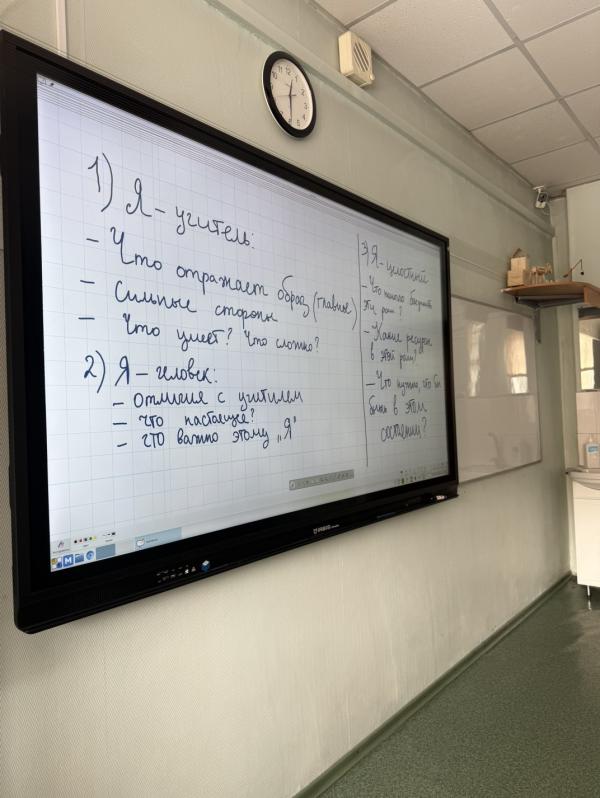 1) Я – учитель:
– Что отражает образ (главное)
– Сильные стороны
– Что умеет? Что сложно?
2) Я – человек:
– отличия с учителем
– что настоящее?
– что важно этому „Я"
3) Я – целостный
– Что помогает
эти роли?
– Какие ресурсы
в этой роли?
– Что нужно, что бы
быть в этом
состоянии?
12